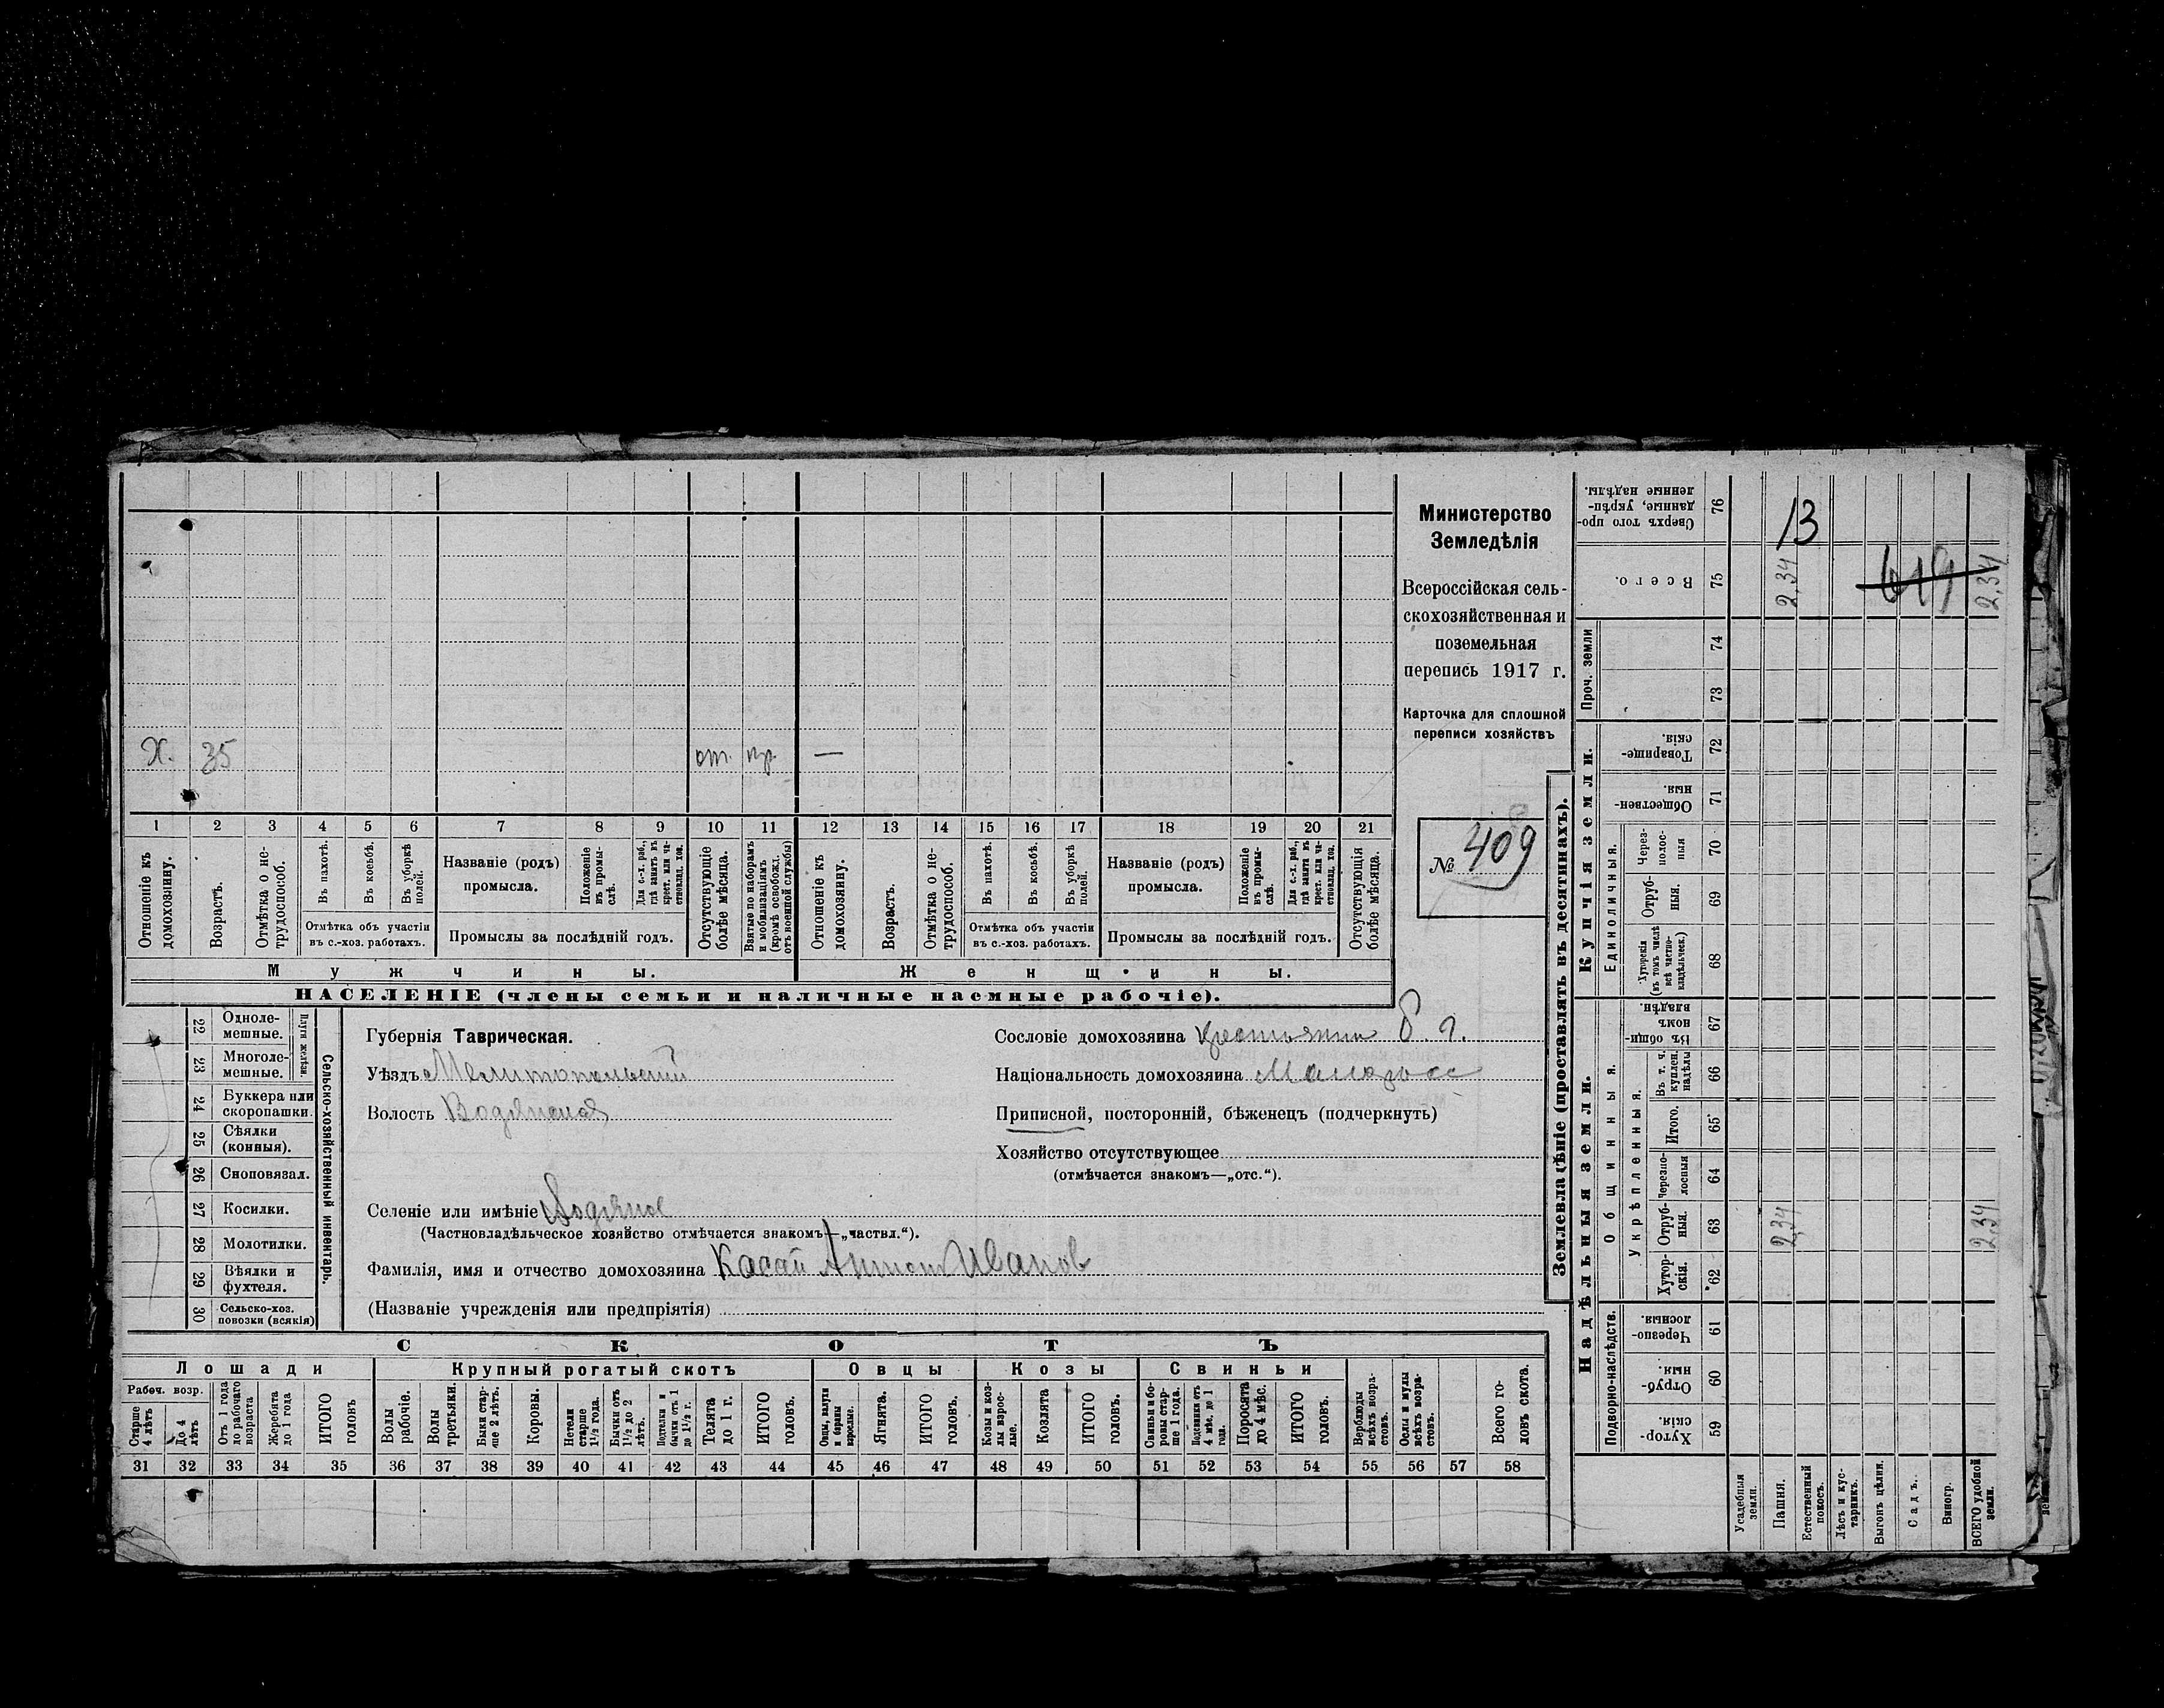 Х. 35 от. пр. —
1 2 3 4 5 6 7 8 9 10 11 12 13 14 15 16 17 18 19 20 21
Отношеніе къ домохозяину.
Возрастъ.
Отмѣтка о не-трудоспособ.
Въ пахотѣ.
Въ косьбѣ.
Въ уборкѣ полей.
Отмѣтка объ участіи
въ с.-хоз. работахъ.
Названіе (родъ)
промысла.
Положеніе въ промы-слѣ.
Для с.-х. раб., гдѣ занятъ въ крест. или ча-стновлад. хоз.
Промыслы за послѣдній годъ.
Отсутствующіе болѣе мѣсяца.
Взятые по наборамъ и мобилизаціямъ (кромѣ освобожд. отъ военной службы)
Отношеніе къ домохозяину.
Возрастъ.
Отмѣтка о не-трудоспособ.
Въ пахотѣ.
Въ косьбѣ.
Въ уборкѣ полей.
Отмѣтка объ участіи
въ с.-хоз. работахъ.
Названіе (родъ)
промысла.
Положеніе въ промы-слѣ.
Для с.-х. раб., гдѣ занята въ крест. или ча-стновлад. хоз.
Промыслы за послѣдній годъ.
Отсутствующія болѣе мѣсяца.
Мужчины. Женщины.
НАСЕЛЕНІЕ (члены семьи и наличные наемные рабочіе).
Министерство
Земледѣлія
Всероссійская сель-
скохозяйственная и
поземельная
перепись 1917 г.
Карточка для сплошной
переписи хозяйствъ
№ 409
Сельско-хозяйственный инвентарь.
Плуги желѣзн.
22 Одноле-
мешные.
23 Многоле-
мешные.
24 Буккера или
скоропашки.
25 Сѣялки
(конныя).
26 Сноповязал.
27 Косилки.
28 Молотилки.
29 Вѣялки и
фухтеля.
30 Сельско-хоз.
повозки (всякія)
Губернія Таврическая.
Уѣздъ Мелитопольский
Волость Водянская
Селеніе или имѣніе Водяное
(Частновладѣльческое хозяйство отмѣчается знакомъ—„частвл.“).
Фамилія, имя и отчество домохозяина Касай Антон Иванов
(Названіе учрежденія или предпріятія)
Сословіе домохозяина крестьянин б. г.
Національность домохозяина Малоросс
Приписной, посторонній, бѣженецъ (подчеркнуть)
Хозяйство отсутствующее
(отмѣчается знакомъ—„отс.“).
СКОТЪ
Лошади Крупный рогатый скотъ Овцы Козы Свиньи
Рабоч. возр.
Старше 4 лѣтъ
До 4 лѣтъ
Отъ 1 года до рабочаго возраста
Жеребята до 1 года
ИТОГО головъ
Волы рабочіе.
Волы третьяки.
Быки стар-ше 2 лѣтъ.
Коровы.
Нетели старше 1½ года.
Бычки отъ 1½ до 2 лѣтъ.
Подтелки и бычки отъ 1 до 1½ г.
Телята до 1 г.
ИТОГО головъ.
Овцы, валухи и бараны взрослые.
Ягнята.
ИТОГО головъ.
Козы и коз-лы взрос-лые.
Козлята
ИТОГО головъ.
Свиньи и бо-ровы стар-ше 1 года.
Подсвинки отъ 4 мѣс. до 1 года.
Поросята до 4 мѣс.
ИТОГО головъ.
Верблюды всѣхъ возра-стовъ.
Ослы и мулы всѣхъ возра-стовъ.
Всего го-ловъ скота.
31 32 33 34 35 36 37 38 39 40 41 42 43 44 45 46 47 48 49 50 51 52 53 54 55 56 57 58
Землевладѣніе (проставлять въ десятинахъ).
Надѣльныя земли. Купчія земли. Проч. земли
Подворно-наслѣдств.
Общинныя.
Укрѣпленныя.
Единоличныя.
Хутор-скія. 59
Отруб-ныя. 60
Черезпо-лосныя 61
Хутор-скія. 62
Отруб-ныя. 63
Черезпо-лосныя 64
Итого. 65
Въ т. ч. куплен. надѣлы 66
Въ общин-номъ владѣн. 67
Хуторскія (въ томъ числѣ всѣ частно-владѣльческ.) 68
Отруб-ныя. 69
Через-полос-ныя 70
Обществен-ныя. 71
Товарище-скія. 72
73
74
Всего. 75
Сверхъ того про-данные, укрѣп-ленные надѣлы. 76
Усадебныя земли.
Пашня.
Естественный покосъ.
Лѣсъ и кус-тарникъ.
Выгонъ цѣлин.
Садъ.
Виногр.
ВСЕГО удобной земли.
2,34
2,34
2,34
2,34
13
619